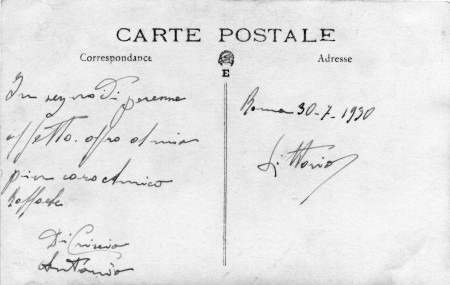 CARTE POSTALE
Correspondance
Adresse
E
In segno Di perenne
affetto. offro al mio
piu caro Amico
Raffaele
Di
Antonio
Roma 30-7-1930